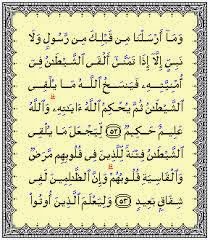 وَمَآ أَرۡسَلۡنَا مِن قَبۡلِكَ مِن رَّسُولٖ وَلَا
نَبِيٍّ إِلَّآ إِذَا تَمَنَّىٰٓ أَلۡقَى ٱلشَّيۡطَٰنُ فِيٓ
أُمۡنِيَّتِهِۦ فَيَنسَخُ ٱللَّهُ مَا يُلۡقِي
ٱلشَّيۡطَٰنُ ثُمَّ يُحۡكِمُ ٱللَّهُ ءَايَٰتِهِۦۗ وَٱللَّهُ
عَلِيمٌ حَكِيمٞ ٥٢ لِّيَجۡعَلَ مَا يُلۡقِي
ٱلشَّيۡطَٰنُ فِتۡنَةٗ لِّلَّذِينَ فِي قُلُوبِهِم مَّرَضٞ
وَٱلۡقَاسِيَةِ قُلُوبُهُمۡۗ وَإِنَّ ٱلظَّٰلِمِينَ لَفِي
شِقَاقِۭ بَعِيدٖ ٥٣ وَلِيَعۡلَمَ ٱلَّذِينَ أُوتُواْ